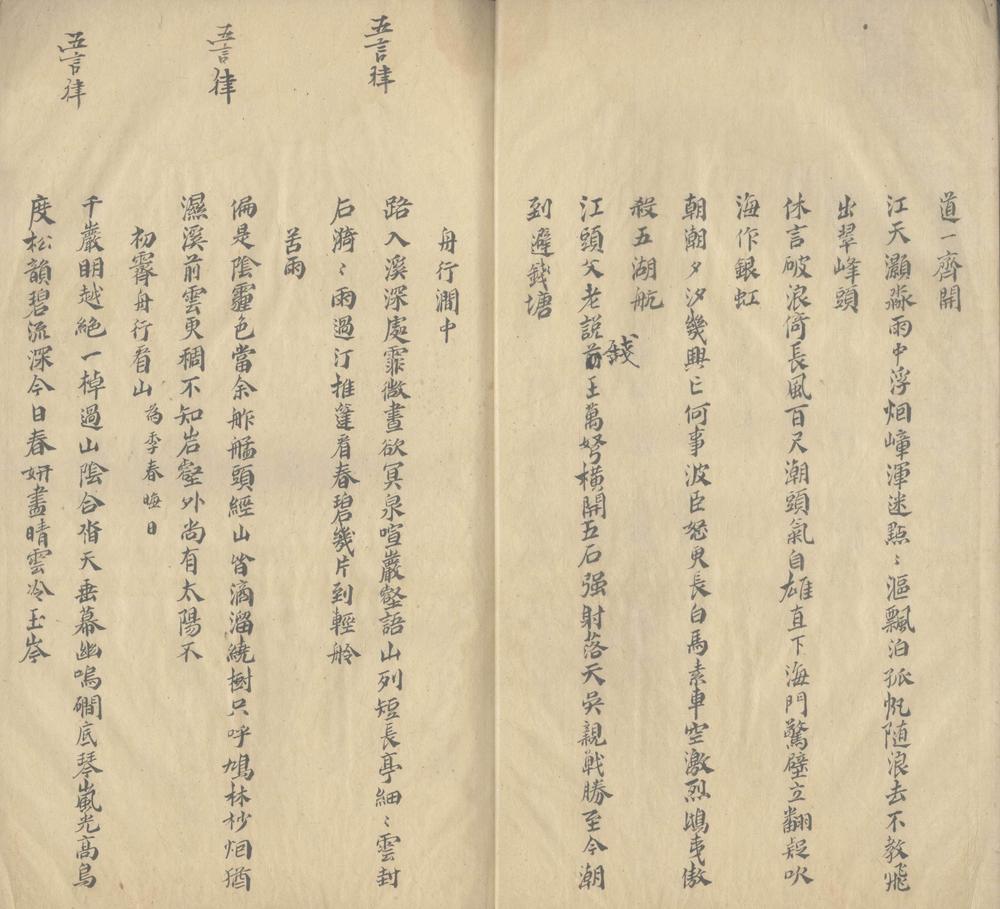 道一齊開
江天灝淼雨中浮烟嶂渾迷點〻漚飄泊孤帆随浪去不教飛
出翠峰頭
休言破浪倚長風百尺潮頭氣自雄直下海門驚壁立翻疑吹
海作銀虹
朝朝夕汐幾興亡何事波臣怒更長白馬素車空激烈鴟夷傲
殺五湖航
江頭父老説前王萬弩橫開五石强射落天吳親戦勝至今潮
錢
到避錢塘
五言律
舟行澗中
路入溪深處霏微晝欲冥泉喧巖壑語山列短長亭細〻雲封
石漪〻雨過汀推篷看春碧幾片到輕舲
五言律
苦雨
偏是陰霾色當余舴艋頭經山皆滴溜繞樹只呼鳩林杪烟猶
濕溪前雲更稠不知岩壑外尚有太陽不
五言律
初霽舟行看山為季春晦日
千巖明越絕一棹過山陰合沓天垂幕幽鳴磵底琴嵐光高鳥
度松韻碧流深今日春妍盡晴雲冷玉岑